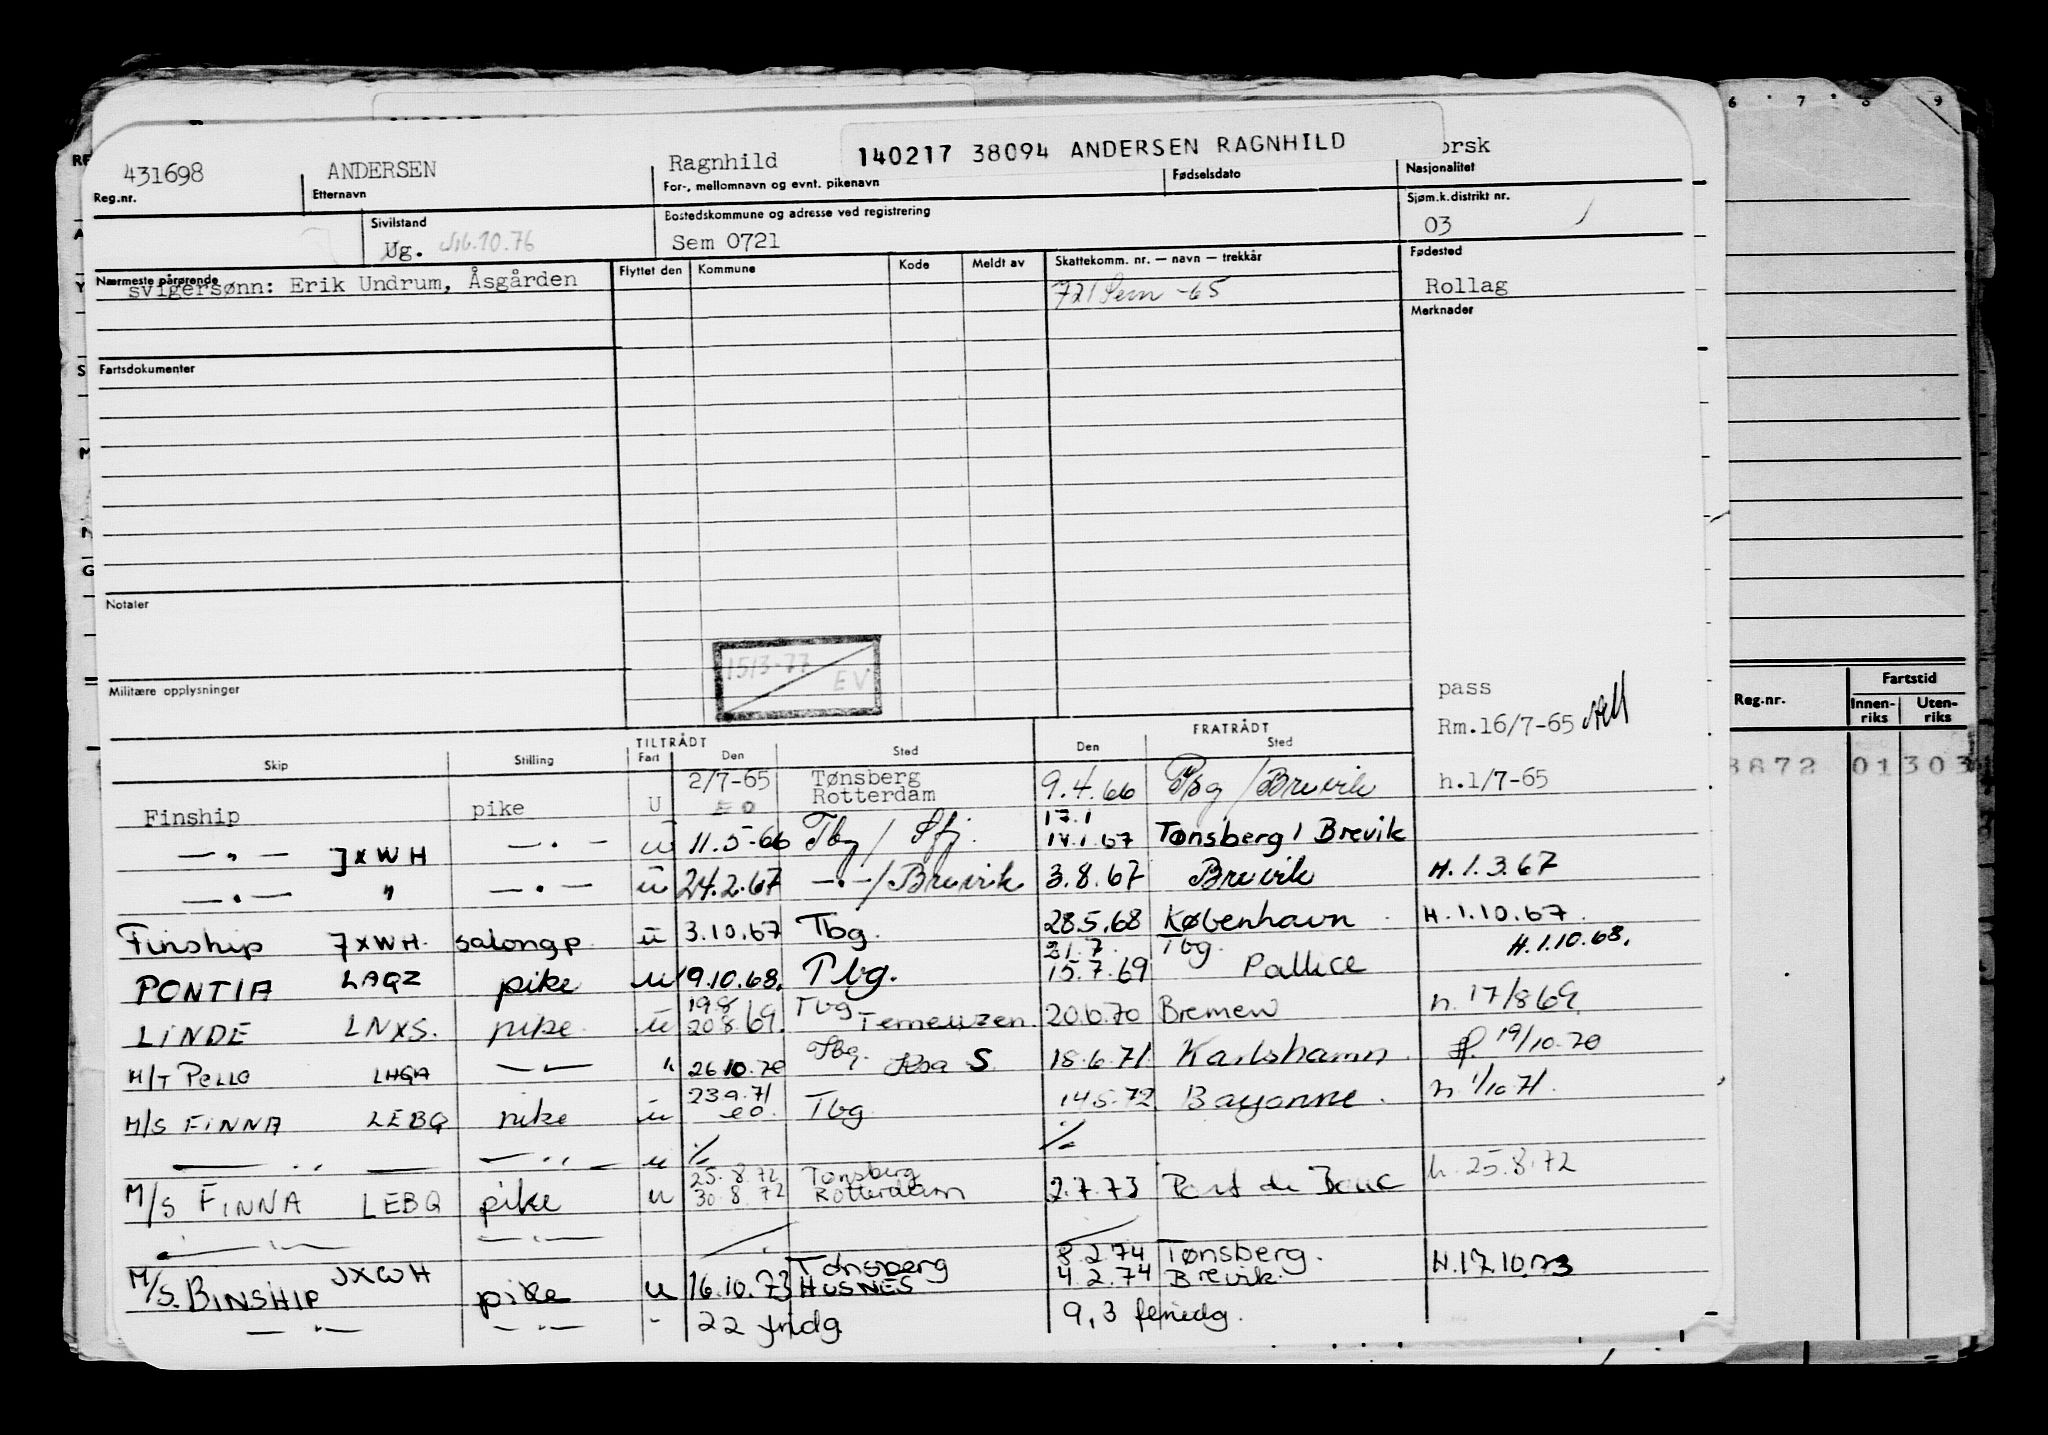 140217 38094 ANDERSEN RAGNHILD
431698 ANDERSEN Ragnhild orsk
Reg.nr. Etternavn For-, mellomnavn og evnt. pikenavn Fødselsdato Nasjonalitet
Sivilstand Bostedskommune og adresse ved registrering Sjøm.k.distrikt nr.
Ug. 16.10.76 Sem 0721 03
Nærmeste pårørende Flyttet den Kommune Kode Meldt av Skattekomm. nr. — navn — trekkår Fødested
svigersønn: Erik Undrum, Åsgården 721 Sem -65 Rollag
Merknader
Fartsdokumenter
Notater
1513-77 EV
Militære opplysninger
pass
Rm.16/7-65
TILTRÅDT FRATRÅDT
Skip Stilling Fart Den Sted Den Sted
2/7-65 Tønsberg
Finship pike U Rotterdam 9.4.66 Tbg/Brevik h.1/7-65
17.1
— " — JXWH — " — u 11.5-66 Tbg / Sfj. 14.1.67 Tønsberg / Brevik
— " — " — " — u 24.2.67 — " —/Brevik 3.8.67 Brevik H.1.3.67
Finship JXWH. salongp. u 3.10.67 Tbg. 28.5.68 København H.1.10.67.
21.7. Tbg. H.1.10.68.
PONTIA LAQZ pike u 19.10.68. Tbg. 15.7.69 Pallice
19.8 Tbg
LINDE LNXS. pike u 20.8.69. Terneuzen 20.6.70 Bremen n. 17/8 69.
M/T PELLO LHGA — " — " 26.10.70 Tbg. Kra S 18.6.71. Karlshamn. 19/10.70
23.9.71
M/S FINNA LEBQ pike u eo. Tbg 14.5.72 Bayonne. n. 1/10 71.
— " — — " — u ⁒ ⁒
25.8.72 Tønsberg
M/S FINNA LEBQ pike u 30.8.72 Rotterdam 2.7.73 Port de Bouc h. 25.8.72
— " — — " —
Tønsberg 8.2.74 Tønsberg.
M/S. BINSHIP JXWH pike u 16.10.73 HUSNES 4.2.74 Brevik. H.17.10.73
— " — — " — - 22 fridg. 9,3 feriedg.
6 7 8 9
Reg.nr. Fartstid
Innen-riks Uten-riks
3872 01 303